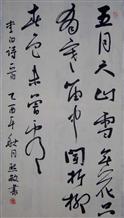 五月天山雪無花只
有寒笛中聞折柳
春色未曾看
李白诗一首乙酉年秋月敏書